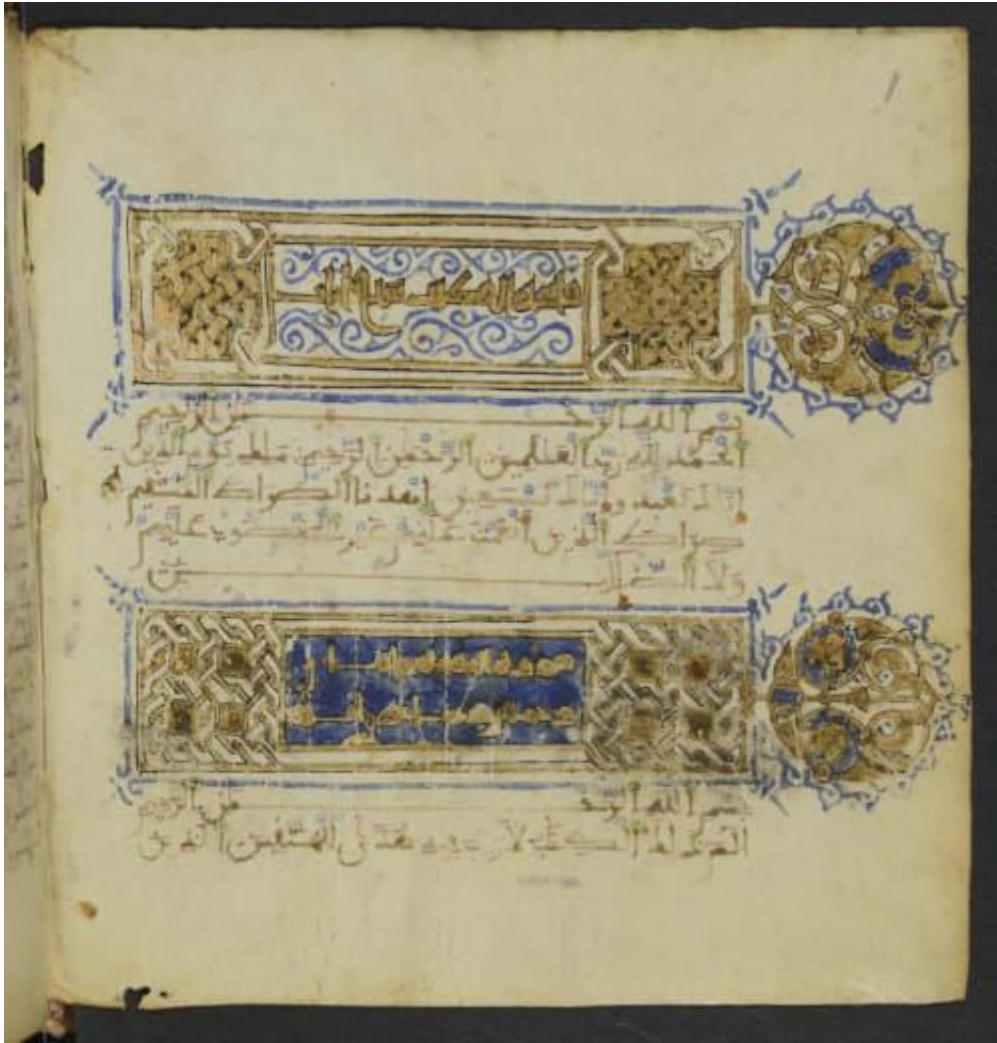 فاتحة الكتاب سبع آيات
بسم الله الرحمن الرحيم
الحمد لله رب العلمين الرحمن الرحيم ملك يوم الدين
إياك نعبد وإياك نستعين اهدنا الصراط المستقيم
صراط الذين أنعمت عليهم غير المغضوب عليهم
ولا الضالين
بسم الله الرحمن الرحيم
الم ذلك الكتب لا ريب فيه هدى للمتقين الذين